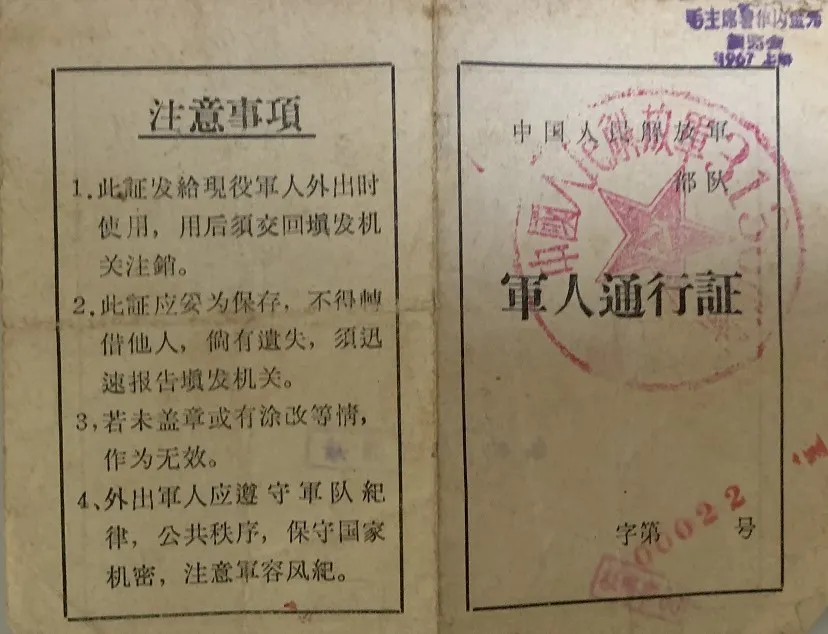 注意事項
1.此証发給現役軍人外出时
使用，用后須交回塡发机
关注銷。
2.此証应妥为保存，不得轉
借他人，倘有遺失，須迅
速报告塡发机关。
3,若未盖章或有涂改等情，
作为无效。
4、外出軍人应遵守軍队紀
律，公共秩序，保守国家
机密，注意軍容风紀。
毛主席
展览会
1967 上海
中国人民解放軍
部队
中國人民解放軍315
軍人通行証
字第00022号